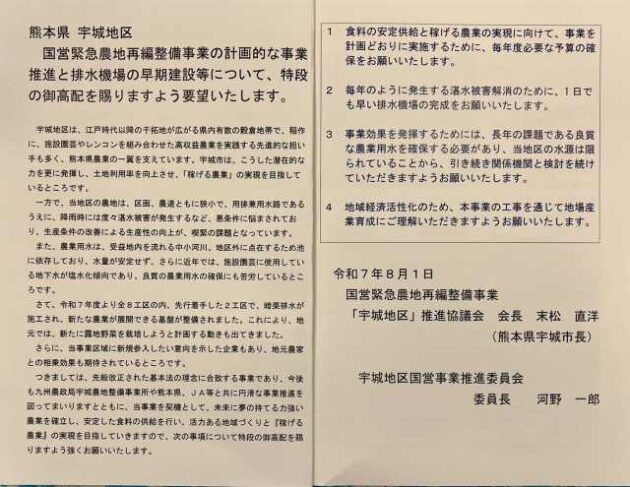 熊本県 宇城地区
国営緊急農地再編整備事業の計画的な事業
推進と排水機場の早期建設等について、特段
の御高配を賜りますよう要望いたします。
宇城地区は、江戸時代以降の干拓地が広がる県内有数の穀倉地帯で、稲作
に、施設園芸やレンコンを組み合わせた高収益農業を実践する先進的な担い
手も多く、熊本県農業の一翼を支えています。宇城市は、こうした潜在的な
力を更に発揮し、土地利用率を向上させ、「稼げる農業」の実現を目指して
いるところです。
一方で、当地区の農地は、区画、農道ともに狭小で、用排兼用水路である
うえに、降雨時には度々湛水被害が発生するなど、悪条件に悩まされてお
り、生産条件の改善による生産性の向上が、喫緊の課題となっています。
また、農業用水は、受益地内を流れる中小河川、地区外に点在するため池
に依存しており、水量が安定せず、さらに近年では、施設園芸に使用してい
る地下水が塩水化傾向であり、良質の農業用水の確保にも苦労しているとこ
ろです。
さて、令和7年度より全8工区の内、先行着手した2工区で、暗渠排水が
施工され、新たな農業が展開できる基盤が整備されました。これにより、地
元では、新たに露地野菜を栽培しようと計画する動きも出てきました。
さらに、当事業区域に新規参入したい意向を示した企業もあり、地元農家
との相乗効果も期待されているところです。
つきましては、先般改正された基本法の理念に合致する事業であり、今後
も九州農政局宇城農地整備事業所や熊本県、JA等と共に円滑な事業推進を
図ってまいりますとともに、当事業を契機として、未来に夢の持てる力強い
農業を確立し、安定した食料の供給を行い、活力ある地域づくりと『稼げる
農業』の実現を目指していきますので、次の事項について特段の御高配を賜
りますよう強くお願いいたします。
1 食料の安定供給と稼げる農業の実現に向けて、事業を
計画どおりに実施するために、毎年度必要な予算の確
保をお願いいたします。
2 毎年のように発生する湛水被害解消のために、1日で
も早い排水機場の完成をお願いいたします。
3 事業効果を発揮するためには、長年の課題である良質
な農業用水を確保する必要があり、当地区の水源は限
られていることから、引き続き関係機関と検討を続け
ていただきますようお願いいたします。
4 地域経済活性化のため、本事業の工事を通じて地場産
業育成にご理解いただきますようお願いいたします。
令和7年8月1日
国営緊急農地再編整備事業
「宇城地区」推進協議会 会長 末松 直洋
(熊本県宇城市長)
宇城地区国営事業推進委員会
委員長 河野 一郎